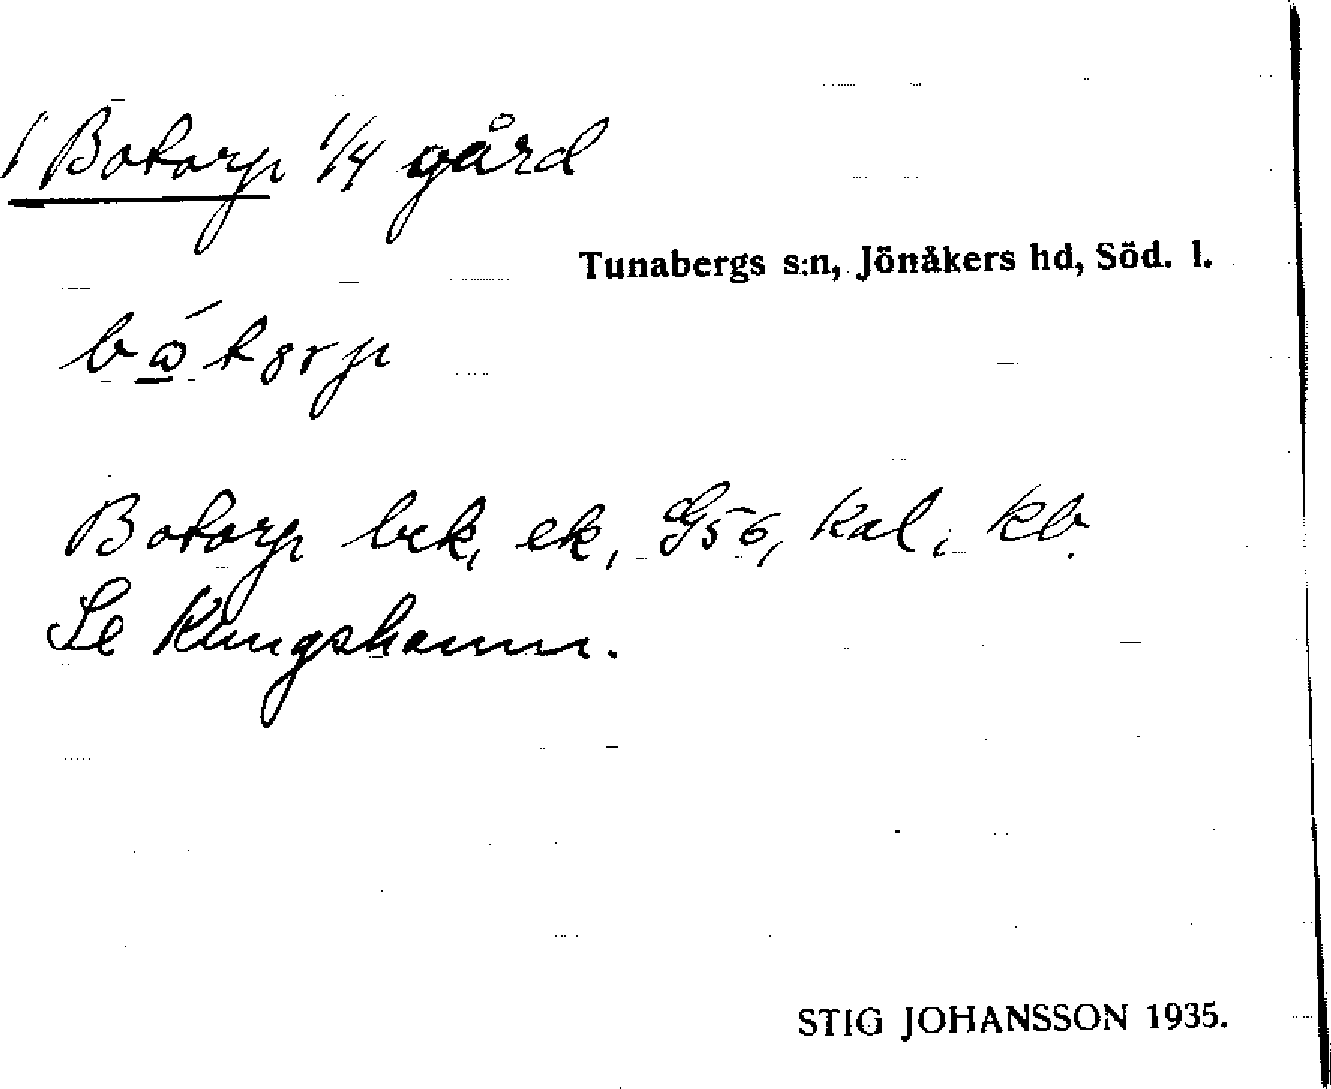 / Botorp 1/4 gård
Tunabergs s:n, Jönåkers hd, Söd. l.
Botorp bek, ek, G56, Kal, kb.
Se Kungshamn.
STIG JOHANSSON 1935.